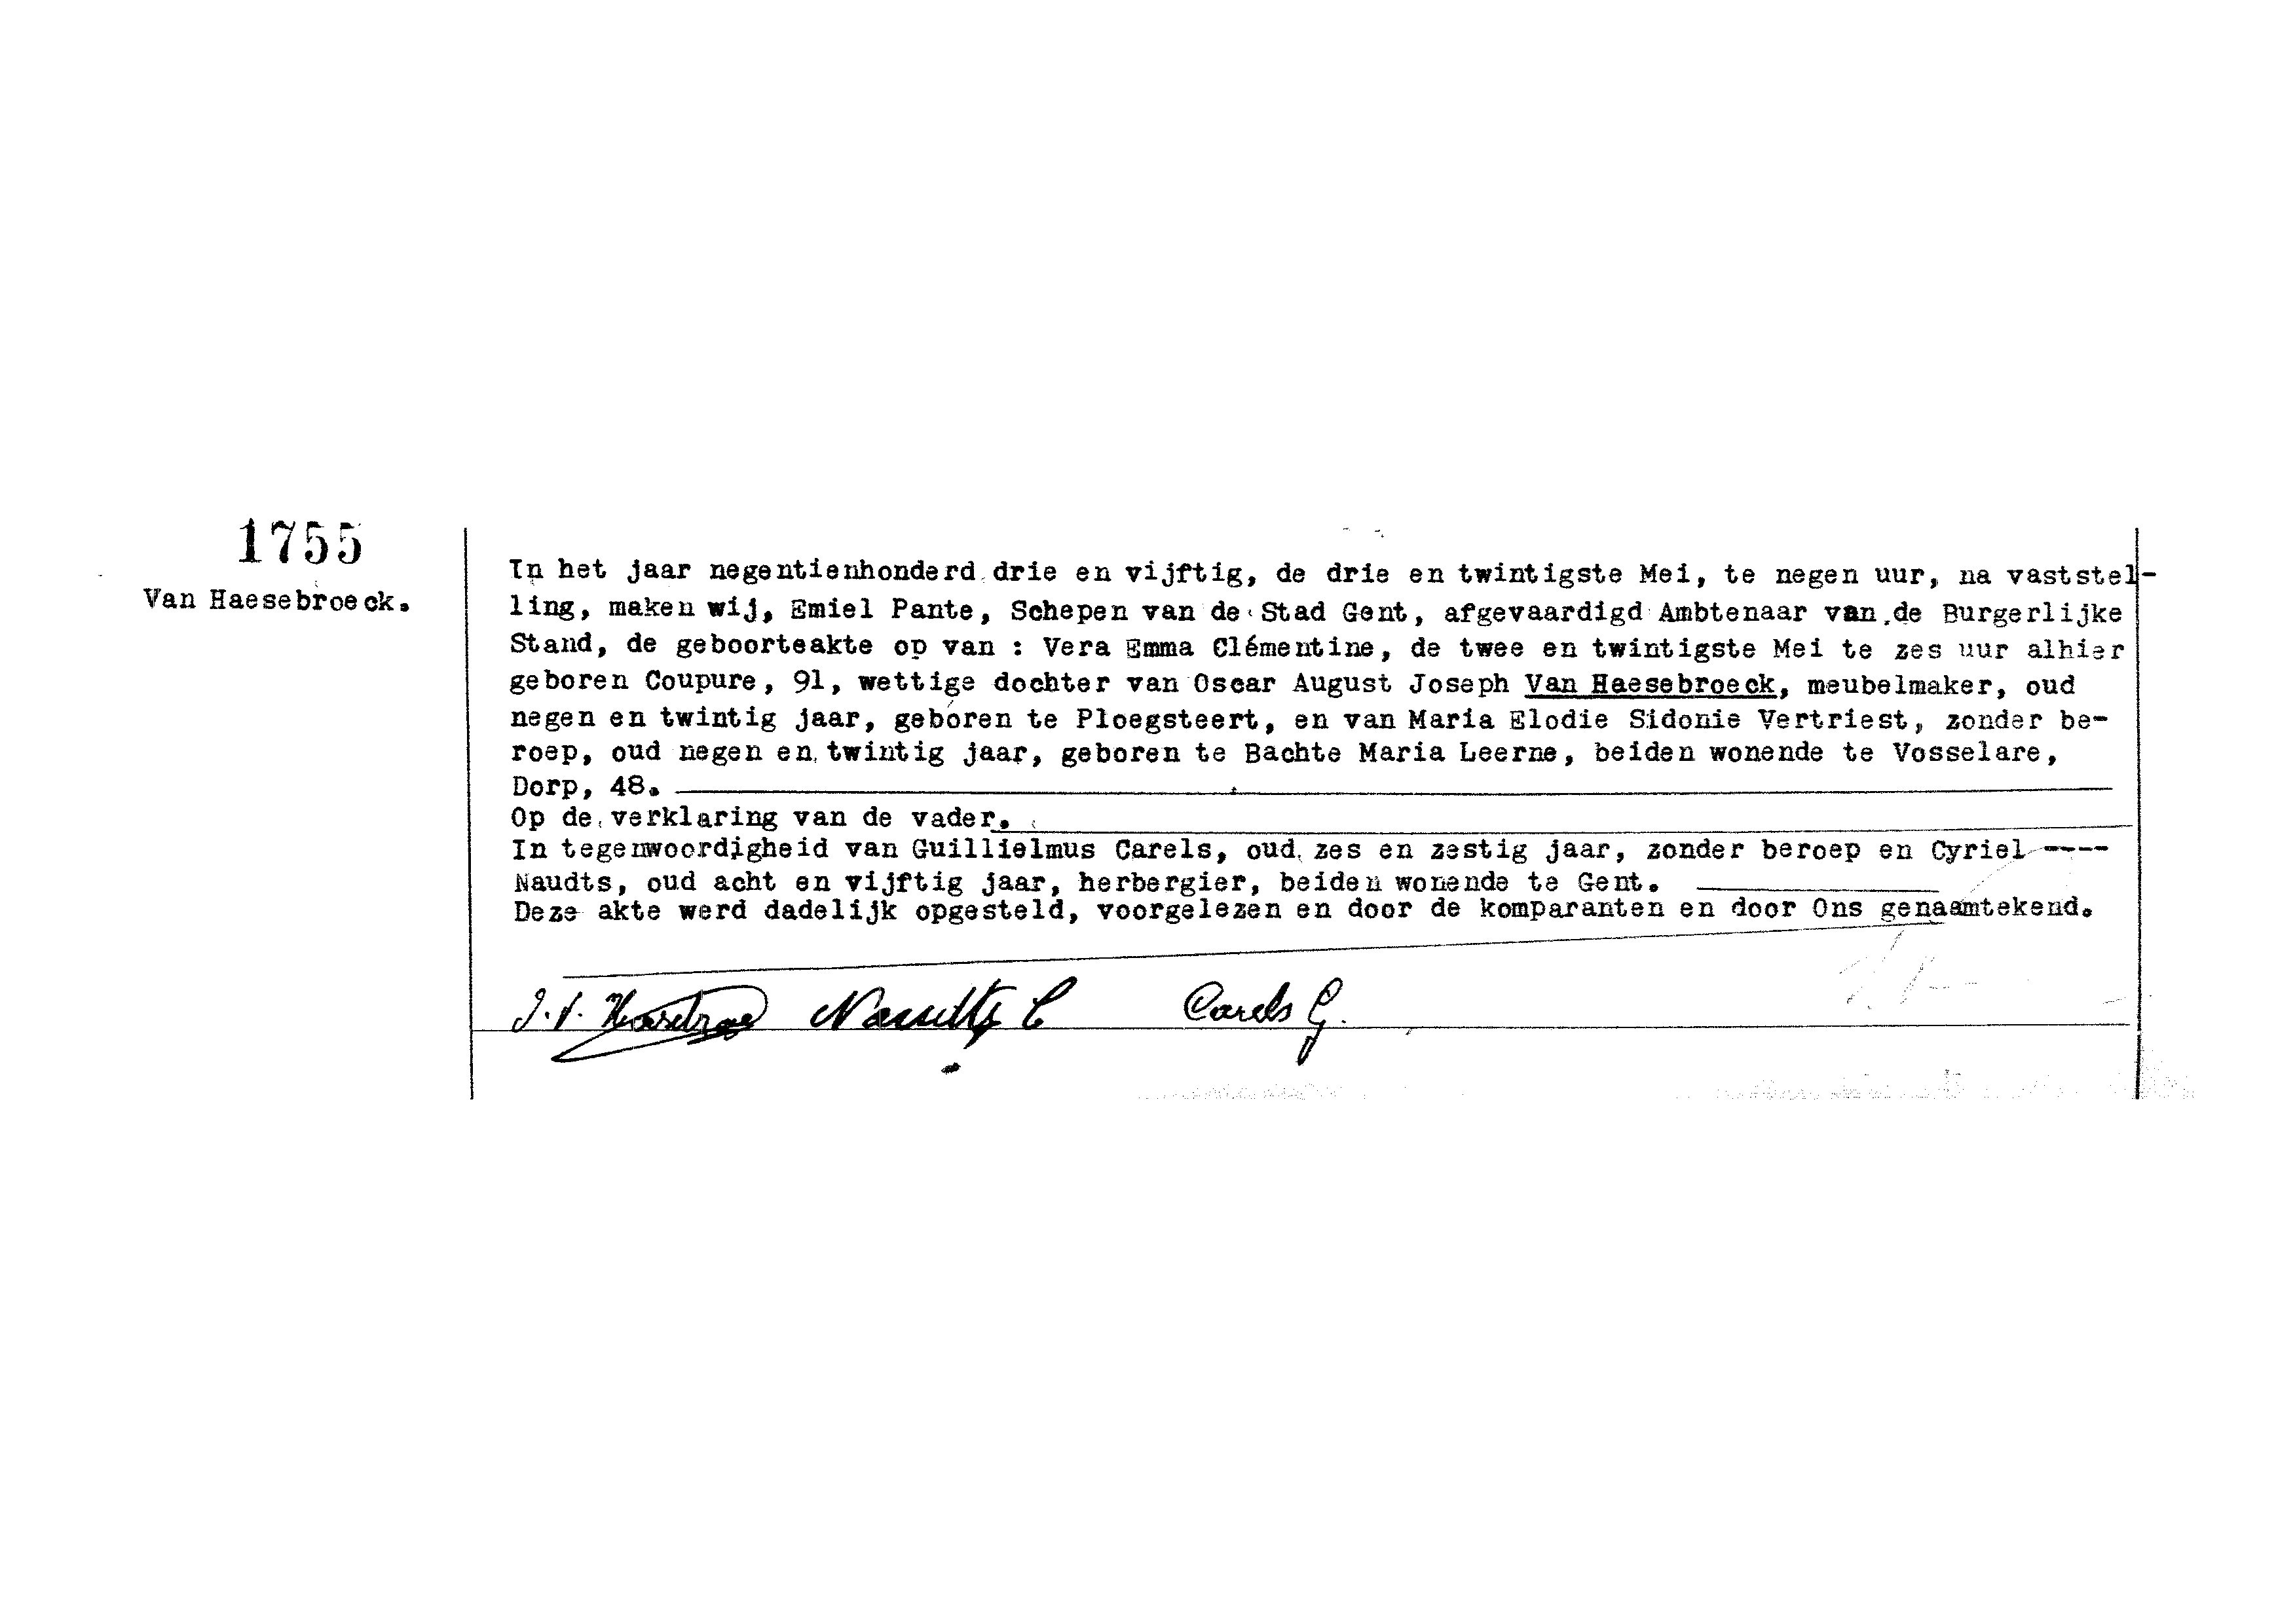 1755
Van Haesebroeck.
In het jaar negentienhonderd drie en vijftig, de drie en twintigste Mei, te negen uur, na vaststel-
ling, maken wij, Emiel Pante, Schepen van de Stad Gent, afgevaardigd Ambtenaar van de Burgerlijke
Stand, de geboorteakte op van : Vera Emma Clémentine, de twee en twintigste Mei te zes uur alhier
geboren Coupure, 91, wettige dochter van Oscar August Joseph Van Haesebroeck, meubelmaker, oud
negen en twintig jaar, geboren te Ploegsteert, en van Maria Elodie Sidonie Vertriest, zonder be-
roep, oud negen en twintig jaar, geboren te Bachte Maria Leerne, beiden wonende te Vosselare,
Dorp, 48.
Op de verklaring van de vader.
In tegenwoordigheid van Guillielmus Carels, oud zes en zestig jaar, zonder beroep en Cyriel ----
Naudts, oud acht en vijftig jaar, herbergier, beiden wonende te Gent.
Deze akte werd dadelijk opgesteld, voorgelezen en door de komparanten en door Ons genaamtekend.
Naudts C Carels G.